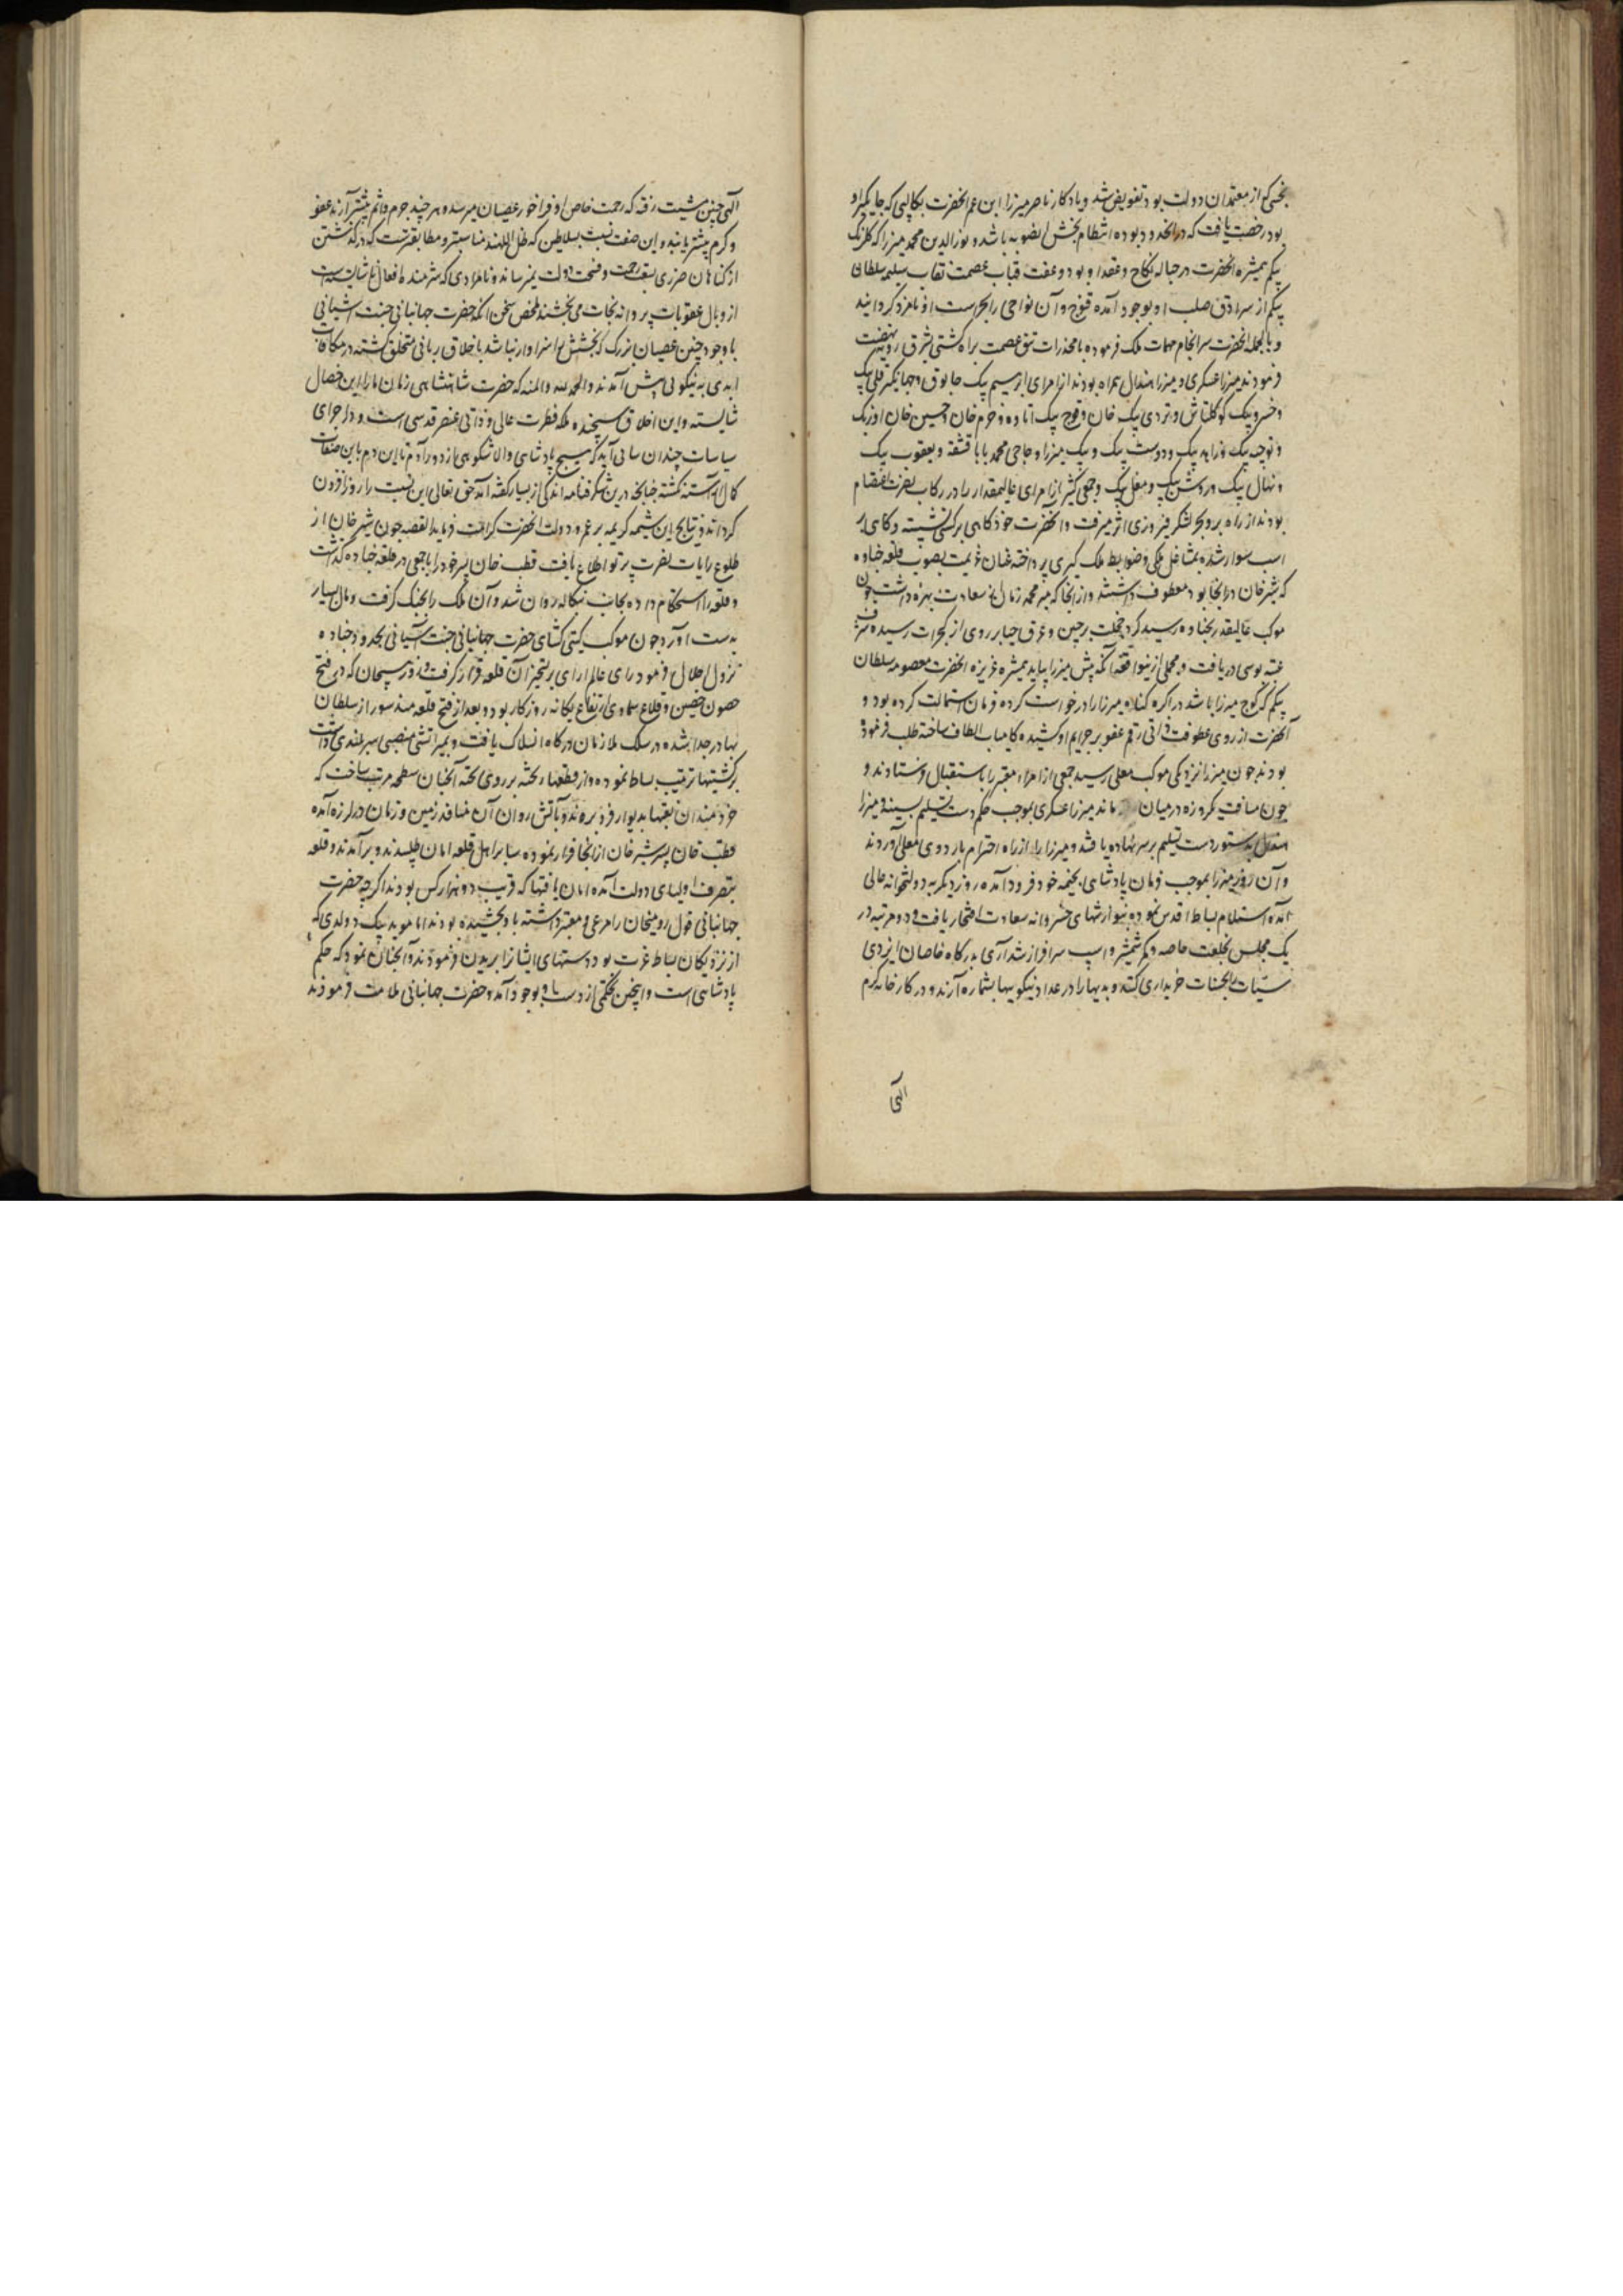 بخشی که از معتمدان دولت بود تفویض شد و یادکار ناصر میرزا ابن عم انحضرت بکالپی که جایکیر او
بود رخصت یافت که در انحدود بوده انتظام بخش انصوبه باشد و نورالدین محمد میرزا که کلرنک
بیکم همشیره انحضرت در حباله نکاح و عقد او بود و عفت قباب عصمت نقاب سلیمه سلطان
بیکم از سرادق صلب او بوجود آمده قنوج و آن نواحی را بحراست او نامزد کردانید
و بالجمله انحضرت سرانجام مهمات ملک فرموده با مخدرات تتق عصمت براه کشتی بشرق رویه نهضت
فرمودند میرزا عسکری و میرزا هندال همراه بودند از امرای ابراهیم بیک جابوق و جهانکیر قلی بیک
و خسرو بیک کوکلتاش و تردی بیک خان و قوج بیک اتاوه و خرم خان و حسین خان اوزبک
و توجه بیک و زاید بیک و دوست بیک و بیک میرزا و حاجی محمد بابا قشقه و یعقوب بیک
و نهال بیک و روشن بیک و مغل بیک و جمعی کثیر از امرای عالیمقدار را در رکاب نصرت اعتصام
بودند از راه بر و بحر لشکر فیروزی اثر میرفت و انحضرت خود کاهی بر کشتی نشسته و کاهی بر
اسب سوار شده بمشاغل ملکی و ضوابط ملک کیری پرداخته عنان عزیمت بصوب قلعه چناده
که شیرخان درانجا بود معطوف داشتند و ازانجا که میر محمد زمان از سعادت بهره داشت چون
موکب عالیقدر بچناده رسید کرد خجلت بر جبین و عرق حیا بر روی از کجرات رسیده شرف
عتبه بوسی دریافت و مجملی ازینواقعه آنکه پیش میرزا بیاید همشیره عزیزه انحضرت معصومه سلطان
بیکم که کوچ میرزا باشد در اکره کناه میرزا را درخواست کرده فرمان استمالت کرده بود و
آنحضرت از روی عطوفت ذاتی رقم عفو بر جرایم او کشیده کامیاب الطاف ساخته طلب فرموده
بودند چون میرزا نزدیکی موکب معلی رسید جمعی از امراء معتبر را باستقبال فرستادند و
چون مسافت یکروزه درمیان ماند میرزا عسکری بموجب حکم دست تسلیم بسینه و میرزا
هندال بدستور دست تسلیم بر سر نهاده یافتند و میرزا را از راه احترام باردوی معلی آوردند
و آن روز میرزا بموجب فرمان پادشاهی بخیمه خود فرود آمده روز دیکر به دولتخانه عالی
آمده استلام بساط اقدس نموده بنوازشهای خسروانه سعادت افتخار یافت و دو مرتبه در
یک مجلس بخلعت خاصه و کمر شمشیر و اسپ سرافراز شد آری بدرکاه خاصان ایزدی
سیئات بحسنات خریداری کنند و بدیها را در عداد نیکوییها بشماره آرند و در کارخانه کرم
الهی
الهی چنین مشیت رفته که رحمت خاص او فراخور عصیان میرسد و هر چند جرم و اثم بیشتر آرند عفو
و کرم بیشتر یابند و این صفت نسبت بسلاطین که ظل اللهند مناسبتر و مطابقترست که در کذشتن
از کناهان ضرری بسعت رحمت و فسحت دولت نمیرساند و نامرادی که شرمنده افعال ناشایسته است
از وبال عقوبات پروانه نجات می بخشند ملخص سخن آنکه حضرت جهانبانی جنت آشیانی
با وجود چنین عصیان بزرک که بخشش را سزاوار نباشد باخلاق ربانی متخلق کشته در مکافات
ابدی به نیکویی پیش آمدند و الحمد لله والمنه که حضرت شاهنشاهی زمان ما را این خصال
شایسته و این اخلاق سنجیده ملکه فطرت عالی و ذاتی عنصر قدسی است و در اجرای
سیاسات چندان تانی آید که هیچ پادشاهی والا شکوهی از دور آدم تا این دم باین صفات
کمال آراسته نکشته چنانچه درین شکرفنامه اندکی از بسیار کفته آمد حق تعالی این نسبت را روز افزون
کرداند و نتایج این شیمه کریمه بر عمر و دولت انحضرت کرامت فرماید القصه چون شیر خان از
طلوع رایات نصرت پرتو اطلاع یافت قطب خان پسر خود را با جمعی در قلعه چناده کذاشت
و قلعه را استحکام داده بجانب بنکاله روان شد و آن ملک را بجنک کرفت و مال بسیار
بدست اورد چون موکب کیتی کشای حضرت جهانبانی جنت آشیانی بحدود چناده
نزول اجلال فرمود رای عالم ارای بر تسخیر آن قلعه قرار کرفت و رومیخان که در فتح
حصون حصین و قلاع سماوی ارتفاع یکانه روزکار بود و بعد از فتح قلعه مندسور از سلطان
بهادر جدا شده در سلک ملازمان درکاه انسلاک یافت و بمیر آتشی منصبی سربلندی داشت
بر کشتیها ترتیب بساط نموده و از قطعهاء تخته بر روی تخته آنچنان سطحه مرتب ساخت که
خردمندان نقبها بدیوار فرو برده بآتش روان آن منافذ زمین و زمان در لرزه آمده
قطب خان پسر شیر خان ازانجا فرار نموده سایر اهل قلعه امان طلبیدند و برآمدند و قلعه
بتصرف اولیای دولت آمده امان یافتها که قریب دو هزار کس بودند اکرچه حضرت
جهانبانی قول رومیخان را مرعی و معتبر داشته باو بخشیده بودند اما موید بیک دولدی که
از نزدیکان بساط عزت بود دستهای ایشانرا بریدن فرمودند و آنچنان نمود که حکم
پادشاهی است و اینچنین تحکمی از دست او بوجود آمد و حضرت جهانبانی ملامت فرمودند